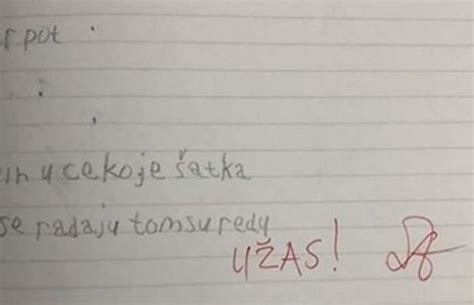 rpot
in u cekoje šatka
se radaju tomsuredu
UŽAS!